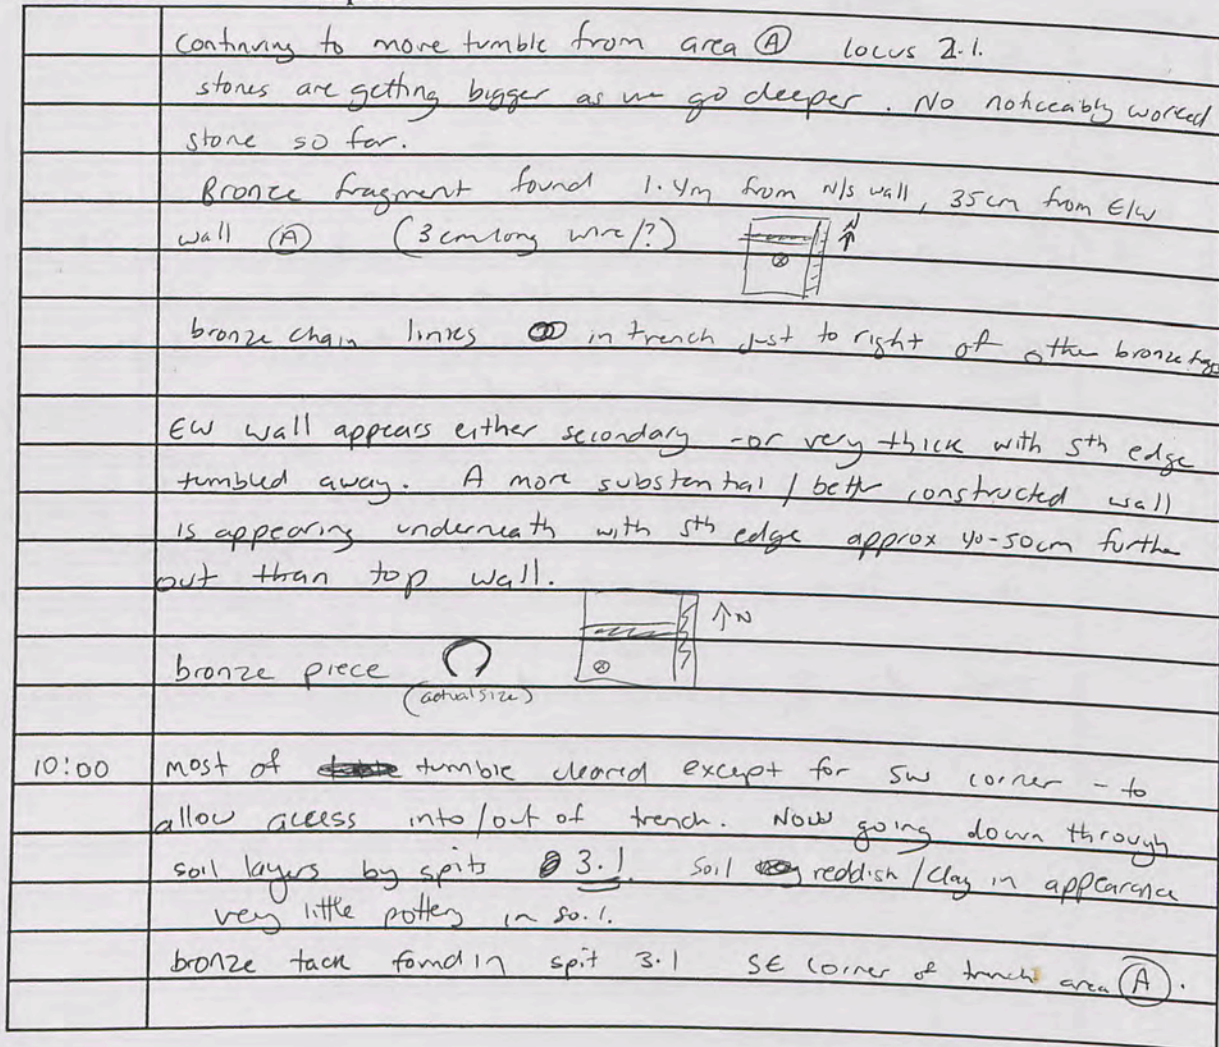 Continuing to move tumble from area Ⓐ locus 2.1.
stones are getting bigger as we go deeper. No noticeably worked
stone so far.
Bronze fragment found 1.4m from N/S wall, 35cm from E/W
wall Ⓐ (3cm long wire/?)
N
bronze chain links in trench just to right of other bronze frag
EW wall appears either secondary - or very thick with sth edge
tumbled away. A more substantial / better constructed wall
is appearing underneath with sth edge approx 40-50cm further
out than top wall.
N
bronze piece
(actual size)
10:00 Most of tumble cleared except for SW corner - to
allow access into/out of trench. Now going down through
soil layers by spits 3.1. Soil reddish/clay in appearance
very little pottery in soil.
bronze tack found in spit 3.1 SE corner of trench area Ⓐ.